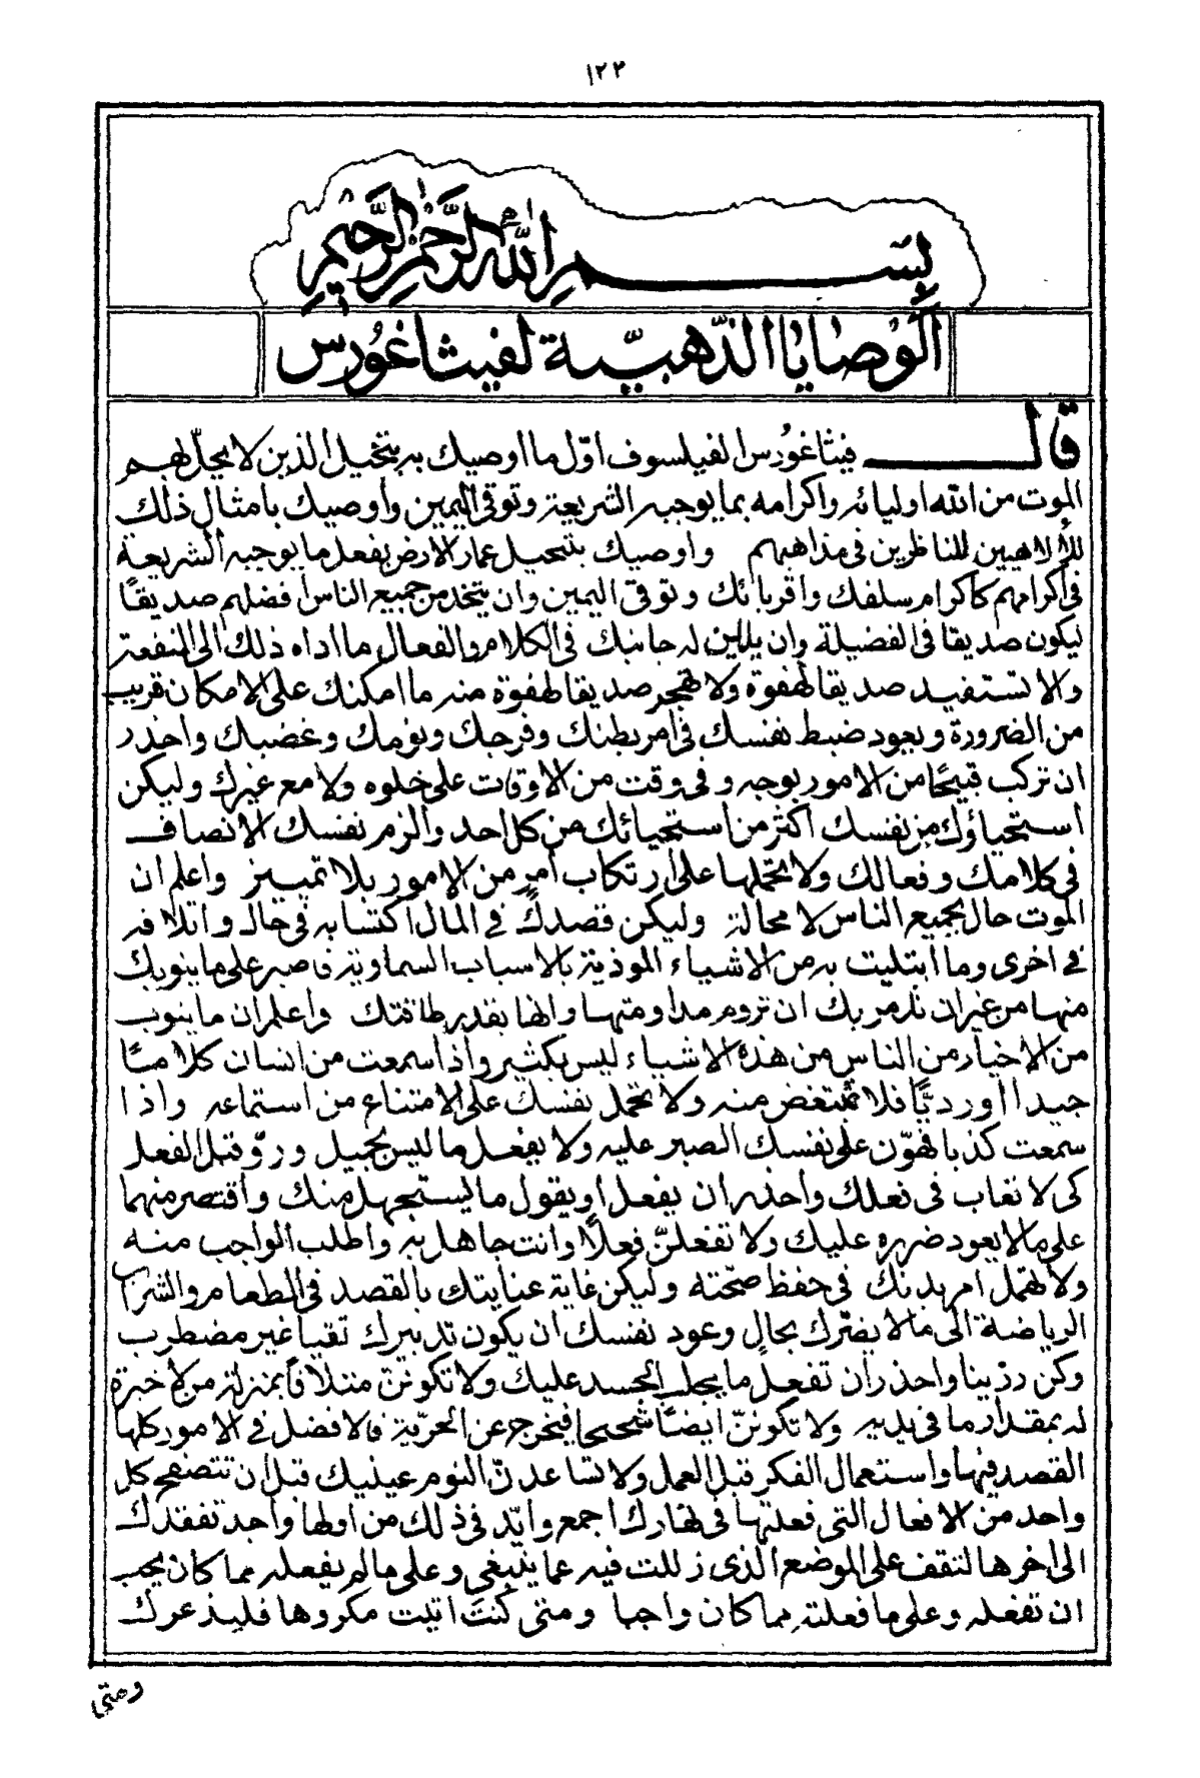 ١٢٣
بسم الله الرحمن الرحيم
الوصايا الذهبية لفيثاغورس
قال فيثاغورس الفيلسوف اول ما اوصيك به بتجيل الذين لا يحل بهم
الموت من الله اوليائه واكرامه بما يوجبه الشريعة وتوقى اليمين واوصيك بامثال ذلك
للألاهيين للناظرين فى مذاهبهم واوصيك بتبجيل عمار الارض بفعل ما يوجبه الشريعة
فى اكرامهم كاكرام سلفك واقربائك وتوقى اليمين وان يتخذ من جميع الناس افضلهم صديقًا
ليكون صديقا فى الفضيلة وان يلين له جانبك فى الكلام والفعال ما اداه ذلك الى المنفعة
والا تستفيد صديقا لهفوة ولا تهجر صديقا لهفوة منه ما امكنك على الامكان قريب
من الضرورة وبعود ضبط نفسك فى امر بطنك وفرجك ونومك وغضبك واحذر
ان تركب قبيحًا من الامور بوجه وفى وقت من الاوقات على خلوه ولا مع غيرك وليكن
استحياؤك من نفسك اكثر من استحيائك من كل احد والزم نفسك الانصاف
فى كلامك وفعالك ولا تحملها على ارتكاب أمر من الامور بلا تمييز واعلم ان
الموت حال بجميع الناس لا محالة وليكن قصدك في المال اكتسابه فى حال واتلافه
في اخرى وما ابتليت به من الاشياء الموذية بالاسباب السماوية فاصبر على ما ينوبك
منها من غير ان تدمر بك ان تروم مداومتها والها بقدر طاقتك واعلم ان ما ينوب
من الاخيار من الناس من هذه الاشياء ليس بكثير واذا سمعت من انسان كلامًا
جيدا اورديًّا فلا تمتغض منه ولا تحمل نفسك على الامتناع من استماعه واذا
سمعت كذبا فهوّن على نفسك الصبر عليه ولا يفعل ما ليس بجميل وروّ قبل الفعل
كى لا تعاب فى فعلك واحذر ان يفعل او يقول ما يستجهل منك واقتصر منهما
على ما لا يعود ضرره عليك ولا تفعلنّ فعلاً وانت جاهل به واطلب الواجب منه
ولا تهمل امر بدنك فى حفظ صحّته وليكن غاية عنايتك بالقصد فى الطعام والشراب
الرياضة الى ما لا يضرّك بحال وعود نفسك ان يكون تدبيرك تقيا غير مضطرب
وكن رزينا واحذر ان تفعل ما يجلب الحسد عليك ولا تكوننّ متلافاً بمنزلة من لا خبرة
له بمقدار ما فى يديه ولا تكوننّ ايضًا شحيحا فيخرج عن الحرّية فالافضل في الامور كلها
القصد فيها واستعمال الفكر قبل العمل ولا تساعدنّ النوم عينيك قبل ان تتصفح كل
واحد من الافعال التى فعلتها فى نهارك اجمع وابّد فى ذلك من اولها واجد تفقدك
الى اخرها لتقف على الموضع الذى زللت فيه عما ينبغى وعلى ما لم يفعله مما كان يجب
ان تفعله وعلى ما فعلته مما كان واجبا ومتى كنت اتيت مكروها فليذعرك
ومتى